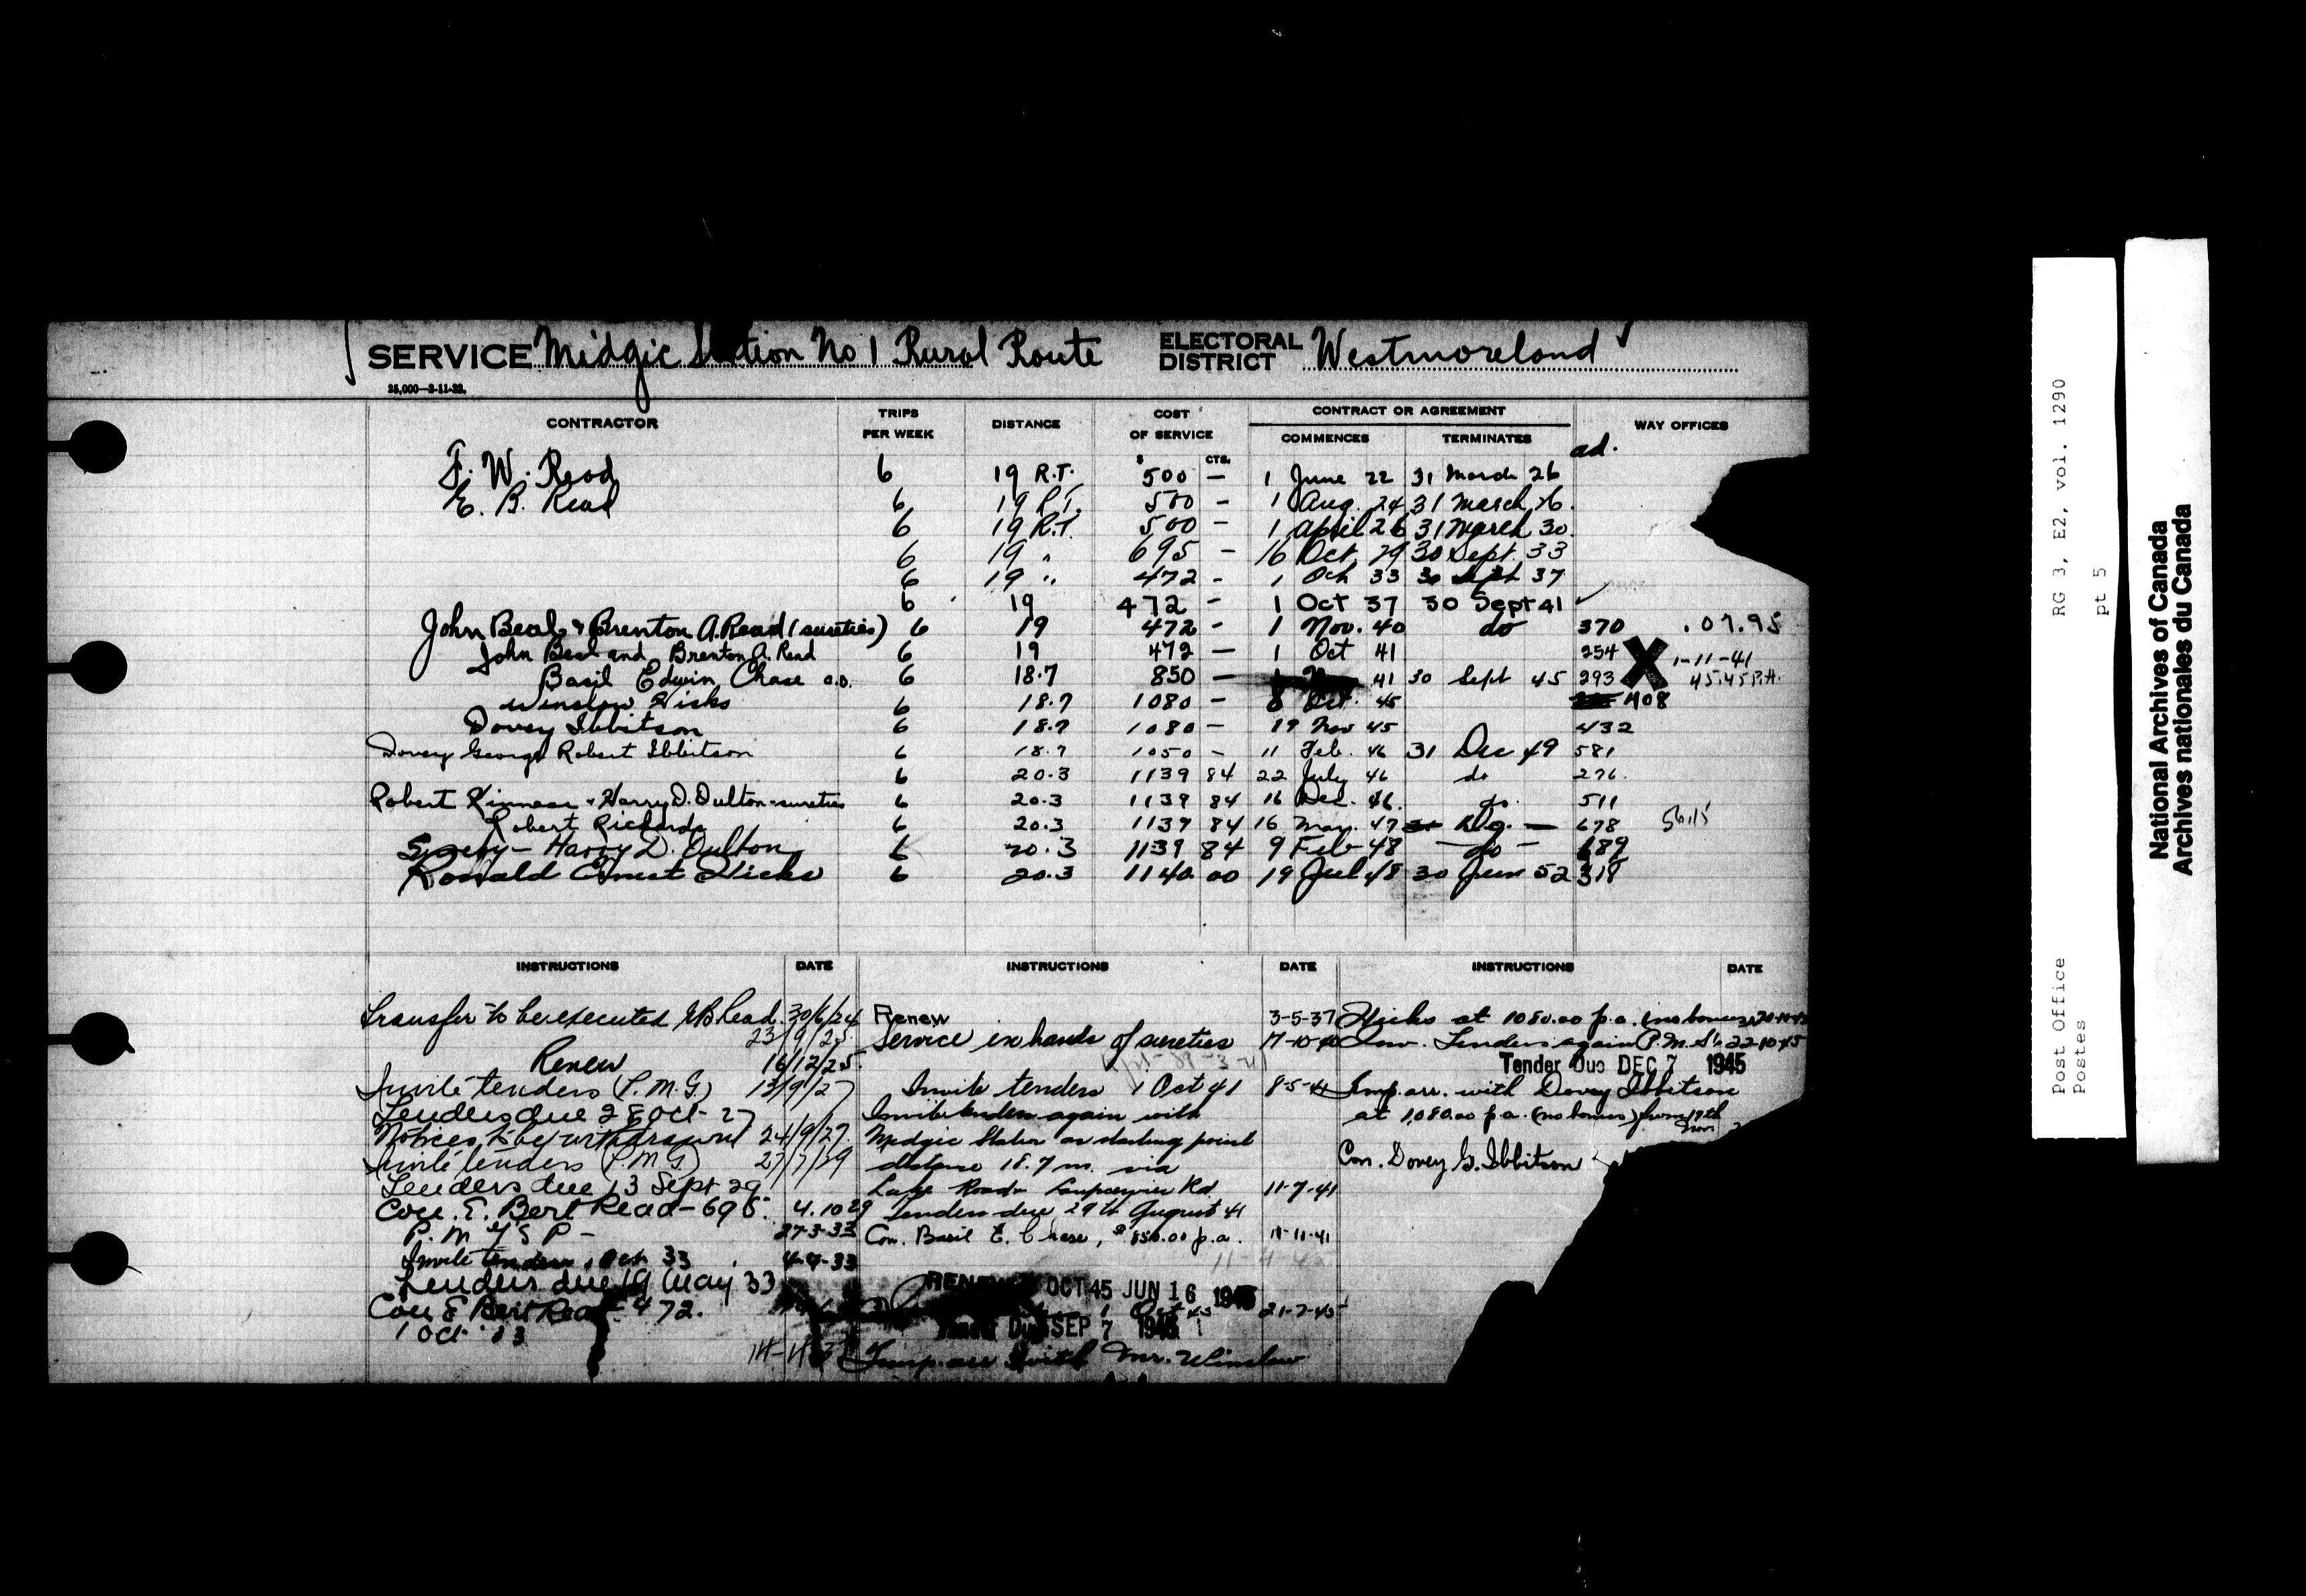 SERVICE Midgic Station No 1 Rural Route ELECTORAL DISTRICT Westmoreland
25,000—3-11-22.
CONTRACTOR TRIPS PER WEEK DISTANCE COST OF SERVICE CONTRACT OR AGREEMENT COMMENCES TERMINATES WAY OFFICES
$ CTS. ad.
F. W. Read 6 19 R.T. 500 — 1 June 22 31 March 26
E. B. Read 6 19 R.T. 500 - 1 Aug. 24 31 March 26.
6 19 R.T. 500 - 1 April 26 31 March 30.
6 19 " 695 - 16 Oct 29 30 Sept. 33
6 19 " 472 - 1 Oct 33 30 Sept 37
6 19 472 - 1 Oct 37 30 Sept 41
John Beal & Brenton A. Read (sureties) 6 19 472 - 1 Nov. 40 do 370 .07.95
John Beal and Brenton A. Read 6 19 472 — 1 Oct 41 254
Basil Edwin Chase 6 18.7 850 — 41 30 Sept 45 293 X 1-11-41
Winslow Hicks 6 18.7 1080 - 8 Oct. 45 408
Dovey Ibbitson 6 18.7 1080 - 19 Nov 45 432
Dovey George Robert Ibbitson 6 18.7 1050 - 11 Feb. 46 31 Dec 49 581
6 20.3 1139 84 22 July 46 do 276
Robert Kinnear & Harry D. Oulton-sureties 6 20.3 1139 84 16 Dec. 46. do. 511
Robert Richards 6 20.3 1139 84 16 May. 47 678
Surety - Harry D. Oulton 6 20.3 1139 84 9 Feb 48 - do - 689
Ronald Ernest Hicks 6 20.3 1140 00 19 Jul 48 30 Jun 52 318
INSTRUCTIONS DATE INSTRUCTIONS DATE INSTRUCTIONS DATE
Transfer to be executed E B Read 30/6/24
23/9/25
Renew 16/12/25
Invite tenders (P.M.G.) 13/9/27
Tenders due 28 Oct 27
Notices to be withdrawn 24/9/27
Invite tenders (P.M.G.) 27/7/29
Tenders due 13 Sept 29
Con. E. Bert Read - 695. 4.10.29
27-3-33
Invite tenders, Oct 33
Tenders due 19 May 33
Con E Bert Read - 472.
1 Oct 33
Renew 3-5-37
Service in hands of sureties 17-10-40
Invite tenders 1 Oct 41 8-5-41
Invite tenders again with
Midgic Station as starting point
distance 18.7 m. via
11-7-41
Tenders due 29th August 41
Con. Basil E. Chase, $850.00 p.a. 11-11-41
OCT 45 JUN 16 1945
1 Oct 45 21-7-45
SEP 7 1945
Temp. arr with Mr. Winslow
Hicks at 1080.00 p.a. (no bonus)
Inv. Tenders again 22-10-45
Tender Due DEC 7 1945
Temp. arr. with Dovey Ibbitson
at 1,080.00 p.a. (no bonus) from 19th
Nov
Con. Dovey G. Ibbitson
RG 3, E2, vol. 1290
pt 5
Post Office
Postes
National Archives of Canada
Archives nationales du Canada